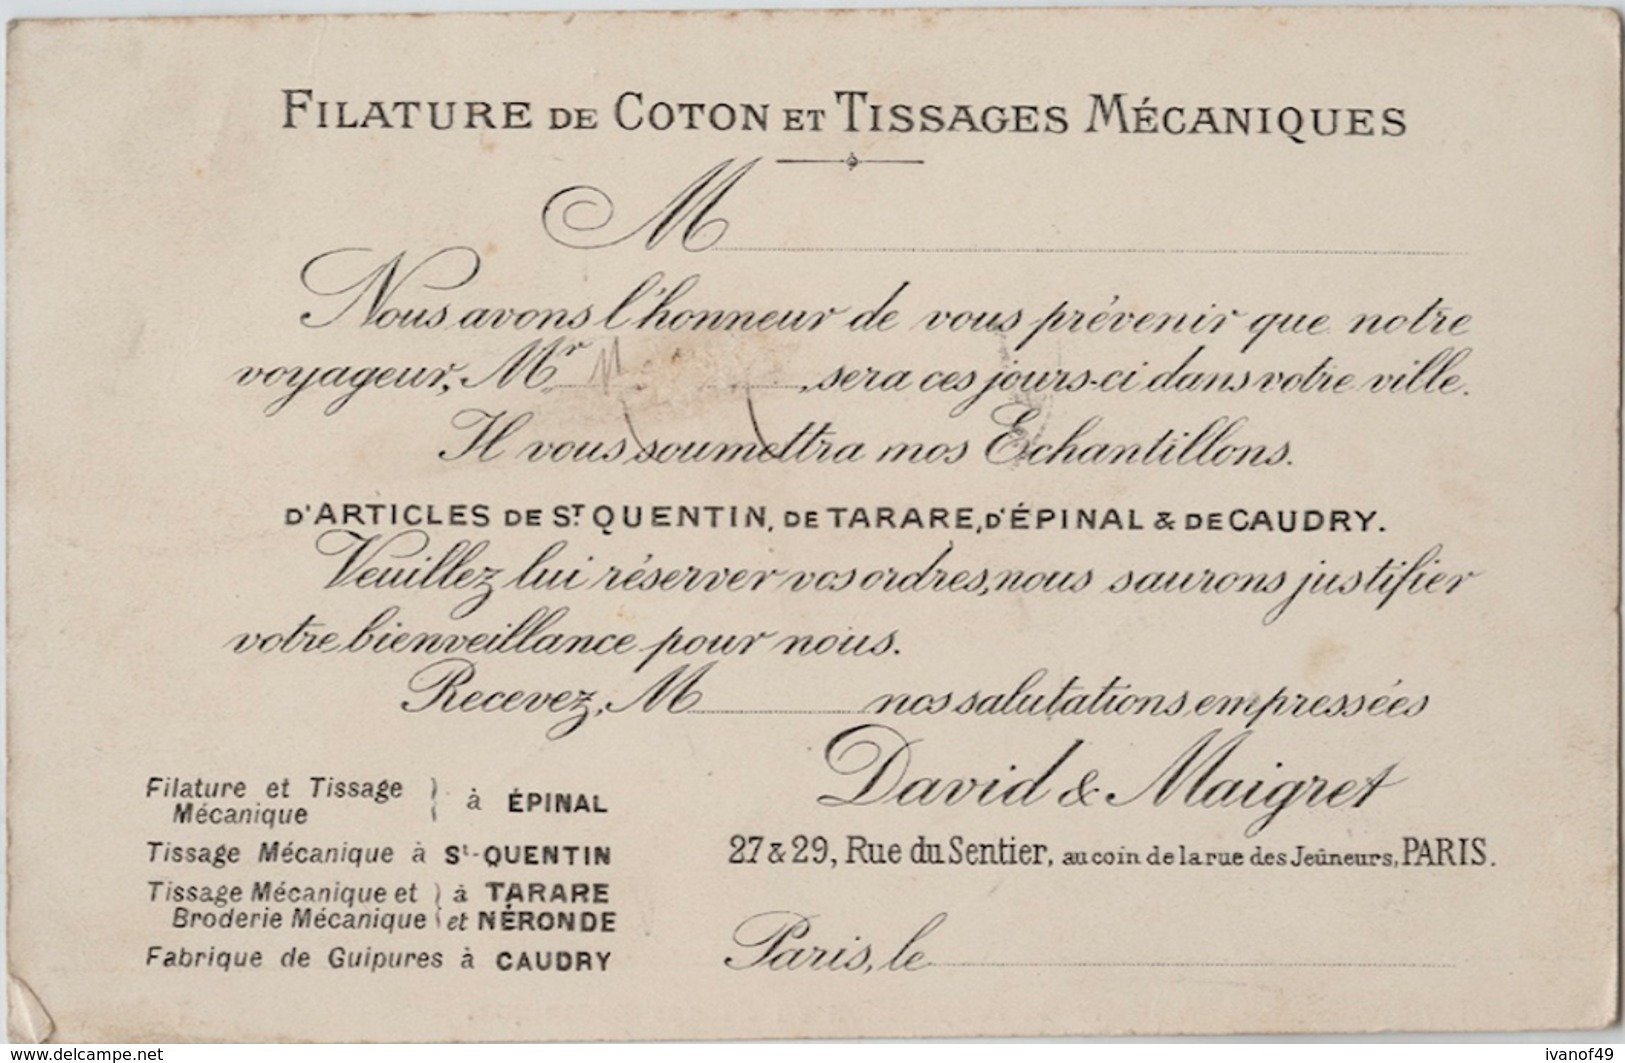 FILATURE DE COTON ET TISSAGES MÉCANIQUES
M
Nous avons l'honneur de vous prévenir que notre
voyageur, Mr , sera ces jours-ci dans votre ville.
Il vous soumettra nos Echantillons.
D'ARTICLES DE ST QUENTIN, DE TARARE, D'ÉPINAL & DE CAUDRY.
Veuillez lui réserver vos ordres, nous saurons justifier
votre bienveillance pour nous.
Recevez, M nos salutations empressées
David & Maigret
27 & 29, Rue du Sentier, au coin de la rue des Jeûneurs, PARIS.
Paris, le
Filature et Tissage
Mécanique } à ÉPINAL
Tissage Mécanique à St-QUENTIN
Tissage Mécanique et } à TARARE
Broderie Mécanique et NÉRONDE
Fabrique de Guipures à CAUDRY
www.delcampe.net
ivanof49